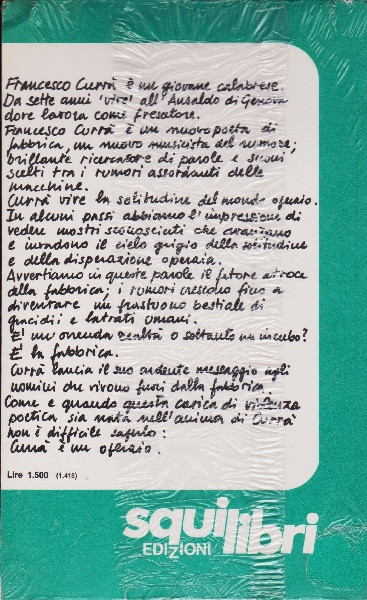 Francesco Currà è un giovane calabrese.
Da sette anni 'vive' all'Ansaldo di Genova
dove lavora come fresatore.
Francesco Currà è un nuovo poeta di
fabbrica, un nuovo musicista del rumore;
brillante ricercatore di parole e suoni
scelti tra i rumori assordanti delle
macchine.
Currà vive la solitudine del mondo operaio.
In alcuni passi abbiamo l'impressione di
vedere mostri sconosciuti che avanzano
e invadono il cielo grigio della solitudine
e della disperazione operaia.
Avvertiamo in queste parole il fetore atroce
della fabbrica; i rumori crescono fino a
diventare un frastuono bestiale di
gracidii e latrati umani.
E' un'orrenda realtà o soltanto un incubo?
E' la fabbrica.
Currà lancia il suo ardente messaggio agli
uomini che vivono fuori dalla fabbrica.
Come e quando questa carica di violenza
poetica sia nata nell'anima di Currà
non è difficile saperlo:
Currà è un operaio.
Lire 1.500 (1.415)
squilibri
EDIZIONI